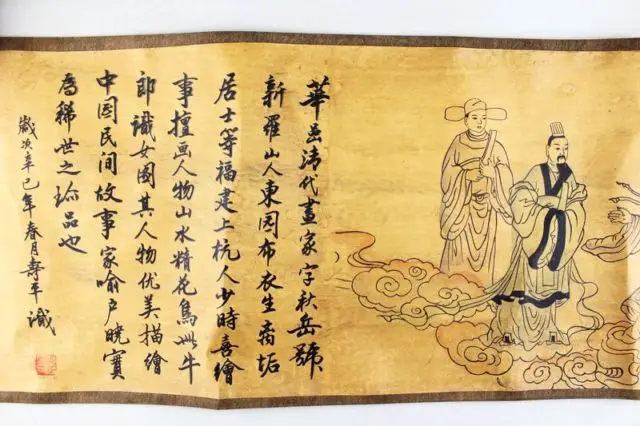 華嵒清代畫家字秋岳號
新羅山人東园布衣生离垢
居士等福建上杭人少時喜繪
事擅画人物山水精花鳥此牛
郎識女圖其人物优美描繪
中国民间故事家喻户曉實
為稀世之珎品也
歲次辛巳年春月壽平識